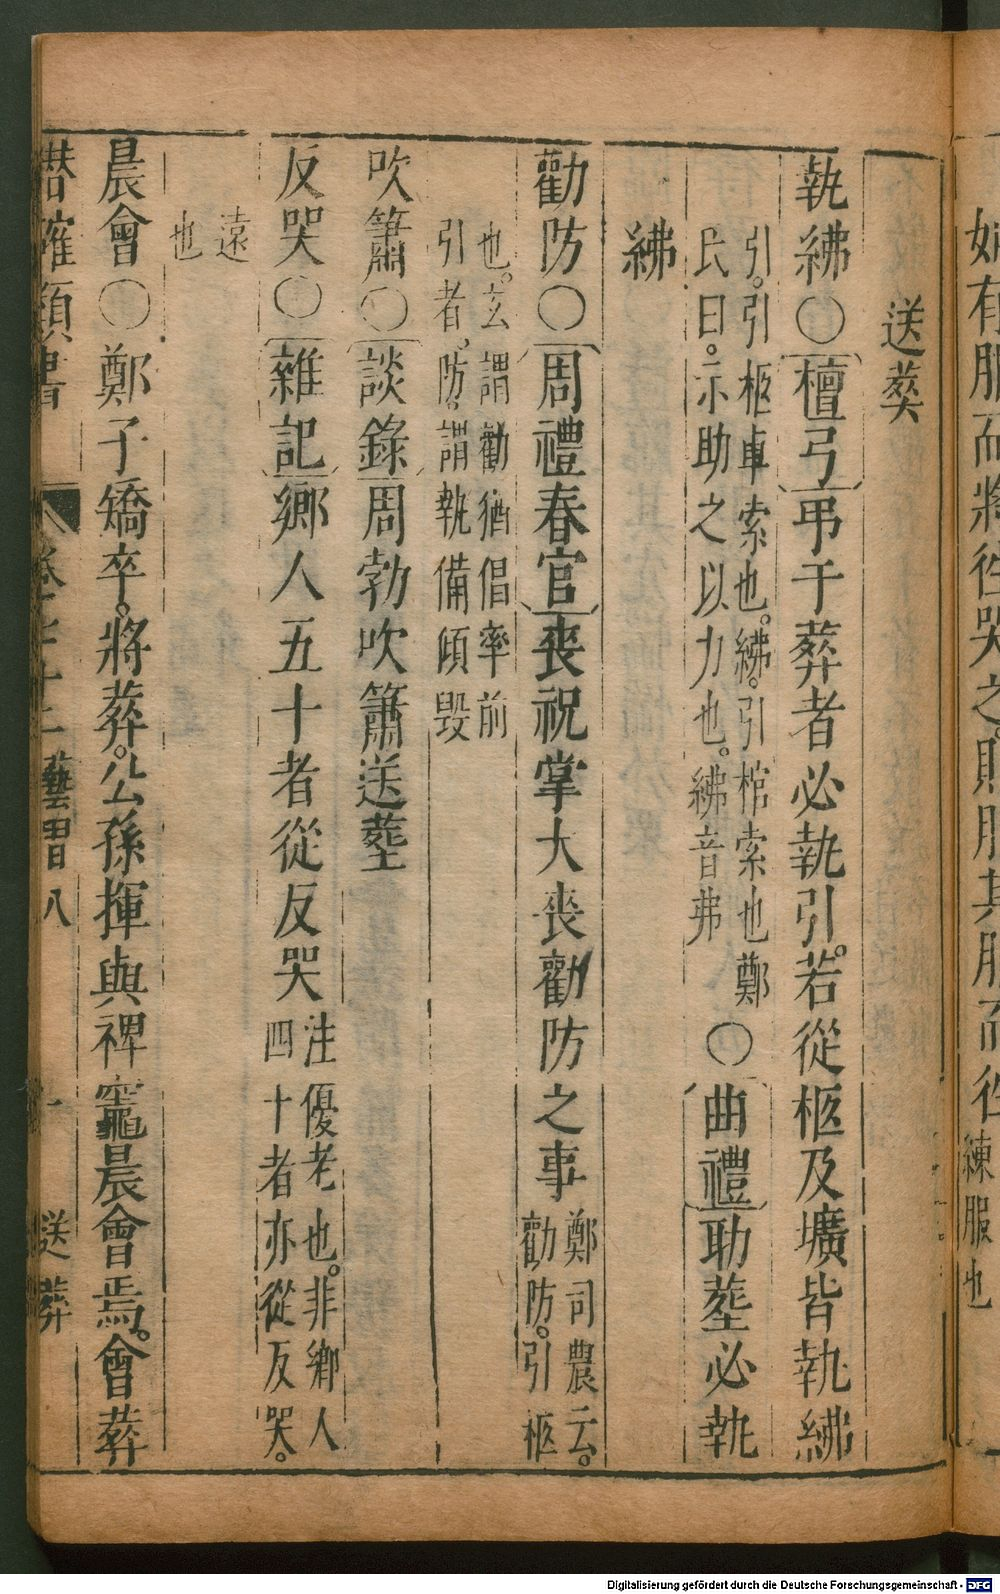 婣有服而將往哭之則服其服而往練服也
送葬
執紼○檀弓弔于葬者必執引。若從柩及壙皆執紼
引。引柩車索也。紼。引棺索也鄭
氏曰。示助之以力也。紼音弗
○曲禮助塟必執
紼
勸防○周禮春官喪祝掌大喪勸防之事
鄭司農云。
勸防。引柩
也。玄謂勸猶倡率前
引者。防。謂執備傾毀
吹簫○談錄周勃吹簫送塟
反哭○雜記鄉人五十者從反哭
注優老也。非鄉人
四十者亦從反哭。
遠
也
晨會○鄭子矯卒。將葬。公孫揮與裨竈晨會焉。會葬
潛確類書
卷七十二
藝習八
一
送葬
Digitalisierung gefördert durch die Deutsche Forschungsgemeinschaft - DFG